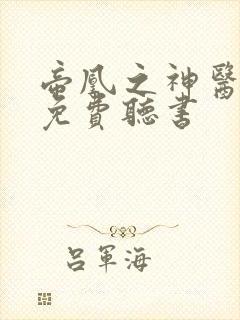 帝凰之神醫
免費聽書
呂軍海